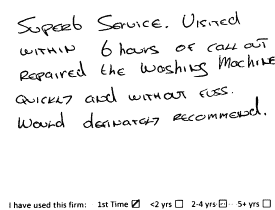 Superb Service. Visited
within 6 hours of call out
Repaired the Washing Machine
quickly and without fuss.
Would definately recommend.
I have used this firm: 1st Time ☑ <2 yrs ☐ 2-4 yrs ☐ 5+ yrs ☐